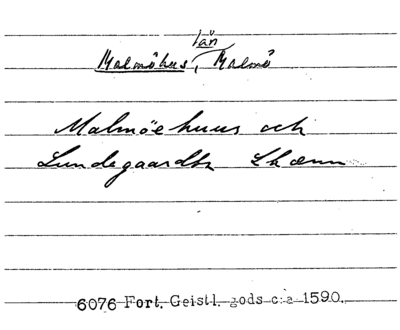 län
Malmöhus, Malmö
Malmöehuus och
Lundegaardtz Lhænn
6076 Fort. Geistl. gods c:a 1590.